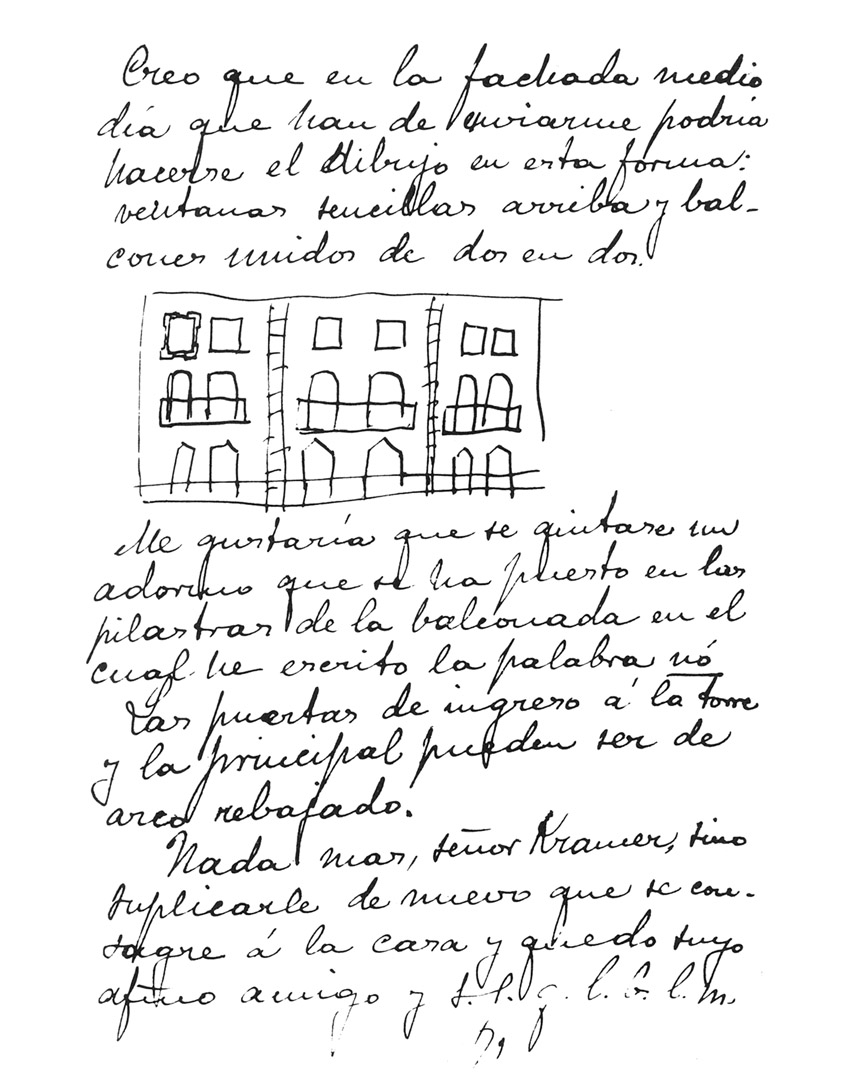 Creo que en la fachada medio
día que han de enviarme podría
hacerse el dibujo en esta forma:
ventanas sencillas arriba y bal-
cones unidos de dos en dos.
Me gustaría que se quitase un
adorno que se ha puesto en las
pilastras de la balconada en el
cual he escrito la palabra nó
Las puertas de ingreso á la torre
y la principal pueden ser de
arco rebajado.
Nada mas, señor Kramer, sino
suplicarle de nuevo que se con-
sagre á la casa y quedo suyo
afmo amigo y s. s. q. l. b. l. m.